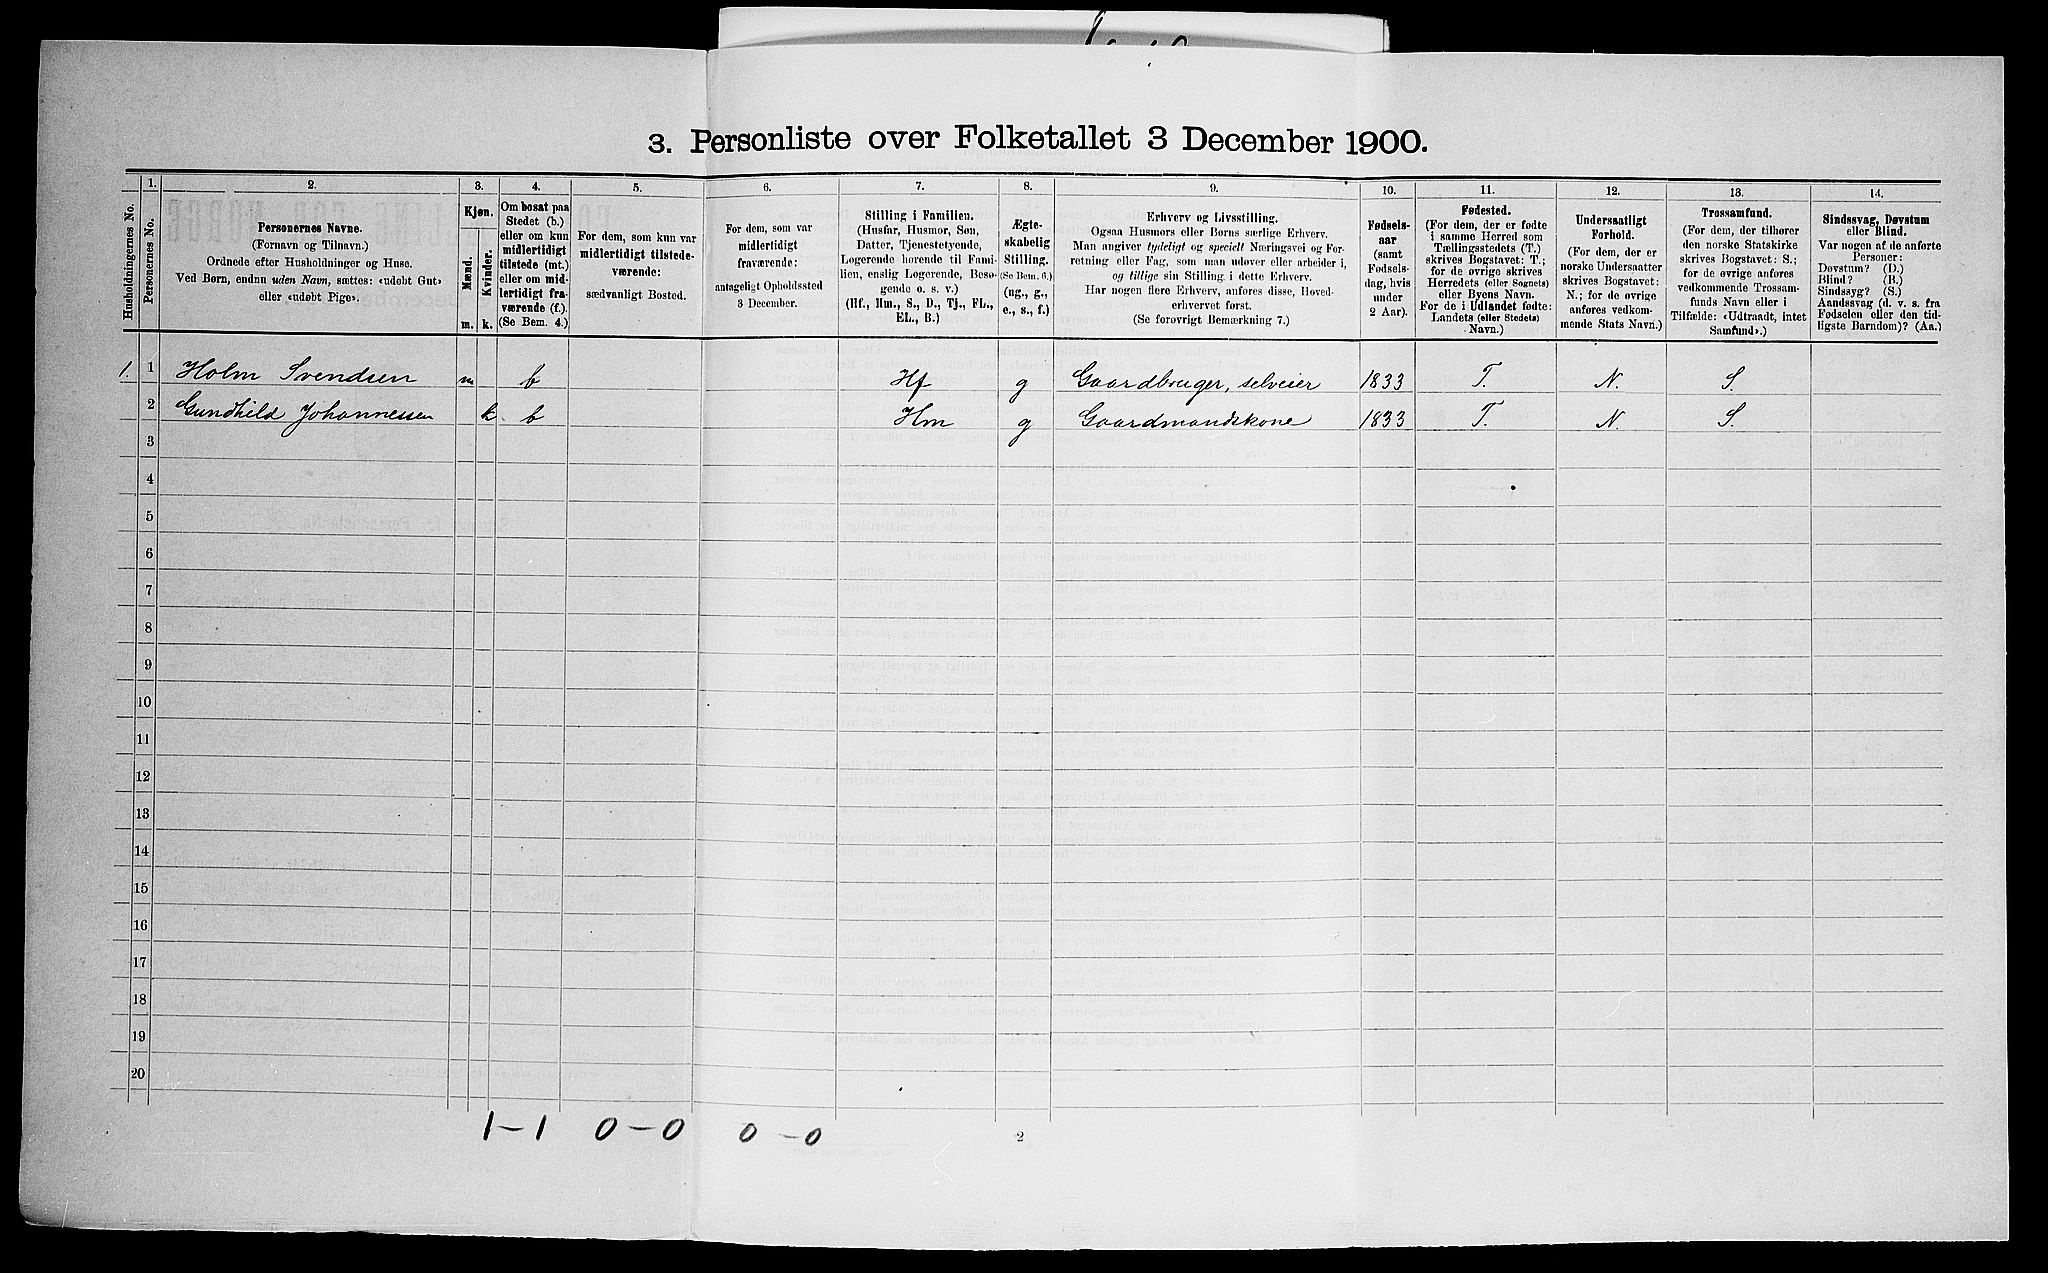 3. Personliste over Folketallet 3 December 1900.
Husholdningernes No.
1.
Personernes No.
2.
Personernes Navne.
(Fornavn og Tilnavn.)
Ordnede efter Husholdninger og Huse.
Ved Børn, endnu uden Navn, sættes: «udøbt Gut»
eller «udøbt Pige».
3.
Kjøn.
Mænd.
Kvinder.
m. k.
4.
Om bosat paa
Stedet (b.)
eller om kun
midlertidigt
tilstede (mt.)
eller om mid-
lertidigt fra-
værende (f.).
(Se Bem. 4.)
5.
For dem, som kun var
midlertidigt tilstede-
værende:
sædvanligt Bosted.
6.
For dem, som var
midlertidigt
fraværende:
antageligt Opholdssted
3 December.
7.
Stilling i Familien.
(Husfar, Husmor, Søn,
Datter, Tjenestetyende,
Logerende hørende til Fami-
lien, enslig Logerende, Besø-
gende o. s. v.)
(Hf., Hm., S., D., Tj., FL.,
EL., B.)
8.
Ægte-
skabelig
Stilling.
(Se Bem. 6.)
(ug., g.,
e., s., f.)
9.
Erhverv og Livsstilling.
Ogsaa Husmors eller Børns særlige Erhverv.
Man angiver tydeligt og specielt Næringsvei og For-
retning eller Fag, som man udøver eller arbeider i,
og tillige sin Stilling i dette Erhverv.
Har nogen flere Erhverv, anføres disse, Hoved-
erhvervet først.
(Se forøvrigt Bemærkning 7.)
10.
Fødsels-
aar
(samt
Fødsels-
dag, hvis
under
2 Aar).
11.
Fødested.
(For dem, der er fødte
i samme Herred som
Tællingsstedets (T.)
skrives Bogstavet: T.;
for de øvrige skrives
Herredets (eller Sognets)
eller Byens Navn.
For de i Udlandet fødte:
Landets (eller Stedets)
Navn.)
12.
Undersaatligt
Forhold.
(For dem, der er
norske Undersaatter
skrives Bogstavet:
N.; for de øvrige
anføres vedkom-
mende Stats Navn.)
13.
Trossamfund.
(For dem, der tilhører
den norske Statskirke
skrives Bogstavet: S.;
for de øvrige anføres
vedkommende Trossam-
funds Navn eller i
Tilfælde: «Udtraadt, intet
Samfund».)
14.
Sindssvag, Døvstum
eller Blind.
Var nogen af de anførte
Personer:
Døvstum? (D.)
Blind? (B.)
Sindssyg? (S.)
Aandssvag (d. v. s. fra
Fødselen eller den tid-
ligste Barndom)? (Aa.)
1. 1 Holm Svendsen m b Hf g Gaardbruger, selveier 1833 T. N. S.
2 Gundhild Johannessen k. b Hm g Gaardmandskone 1833 T. N. S.
3
4
5
6
7
8
9
10
11
12
13
14
15
16
17
18
19
20
1-1 0-0 0-0 2